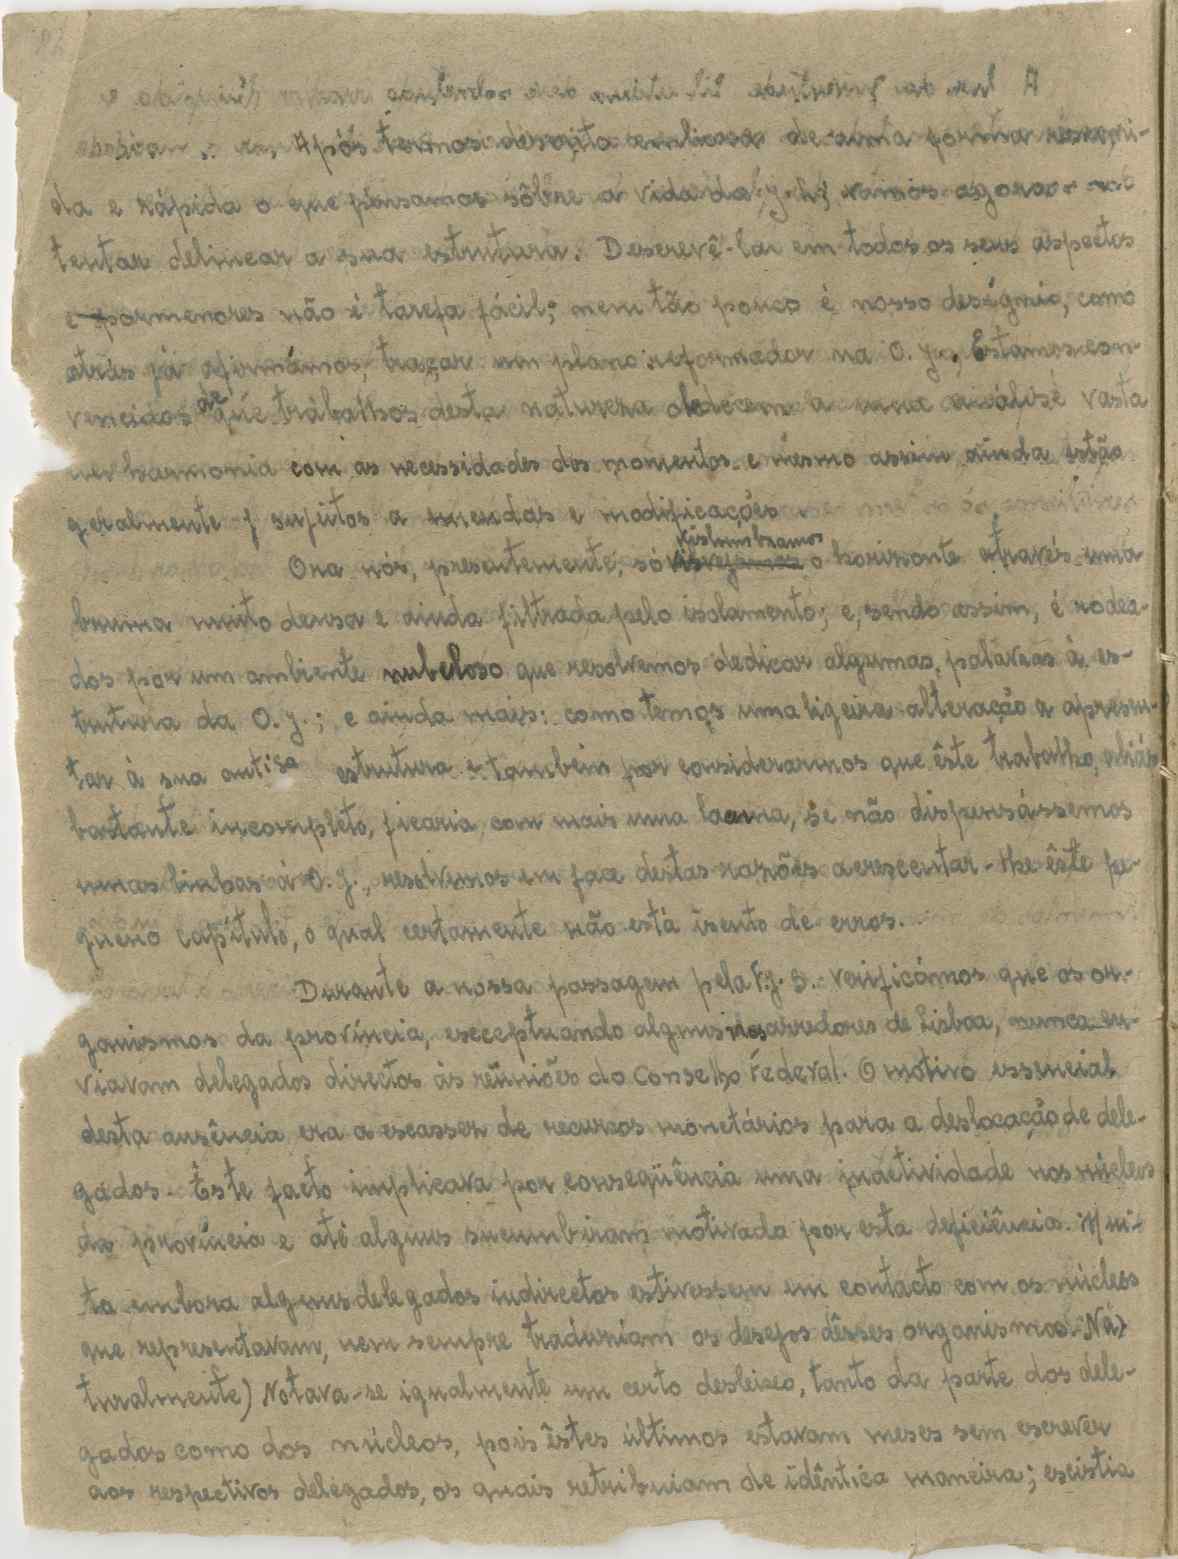 Após termos descrito embora de uma forma resumi-
da e rápida o que pensamos sôbre a vida da J. L; vamos agora
tentar delinear a sua estrutura. Descrevê-la em todos os seus aspectos
e pormenores não é tarefa fácil; nem tão pouco é nosso desígnio, como
atrás já afirmámos, traçar um plano reformador na O. J., Estamos con-
vencidos de que trabalhos desta natureza obdecem a uma análise vasta
em harmonia com as necessidades dos momentos e mesmo assim ainda estão
geralmente sujeitos a emendas e modificações
Ora nós, presentemente, só vislumbramos o horizonte através uma
bruma muito densa e ainda filtrada pelo isolamento; e, sendo assim, é rodea-
dos por um ambiente nubeloso que resolvemos dedicar algumas palavras à es-
trutura da O. J.; e ainda mais: como temos uma ligeira alteração a apresen-
tar à sua antiga estrutura e também por considerarmos que êste trabalho, aliás
bastante incompleto, ficaria com mais uma lacuna, se não dispensássemos
umas linhas à O. J., resolvemos em face destas razões acrescentar-lhe êste pe-
queno capítulo, o qual certamente não está isento de erros.
Durante a nossa passagem pela F. J. S. verificámos que os or-
ganismos da província, esceptuando alguns nos arredores de Lisboa, nunca en-
viavam delegados directos às reüniões do Conselho Federal. O motivo essencial
desta ausência era a escassez de recursos monetários para a deslocação de dele-
gados. Êste facto implicava por conseqüência uma inactividade nos núcleos
da província e até alguns sucumbiram motivada por esta deficiência. Mui-
ta embora alguns delegados indirectos estivessem em contacto com os núcleos
que representavam, nem sempre traduziam os desejos dêsses organismos. (Na-
turalmente) Notava-se igualmente um certo desleixo, tanto da parte dos dele-
gados como dos núcleos, pois êstes últimos estavam meses sem escrever
aos respectivos delegados, os quais retribuiam de idêntica maneira; escistia